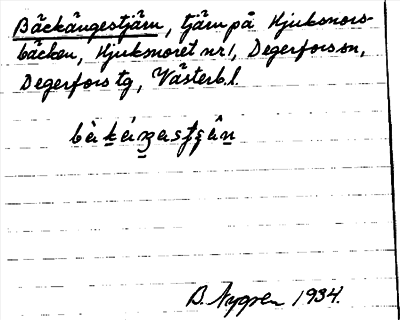 Bäckängestjärn, tjärn på Hjuksmors-
bäcken, Hjuksmoret nr 1, Degerfors sn,
Degerfors tg, Västerb. l.
B. Nygren 1934.